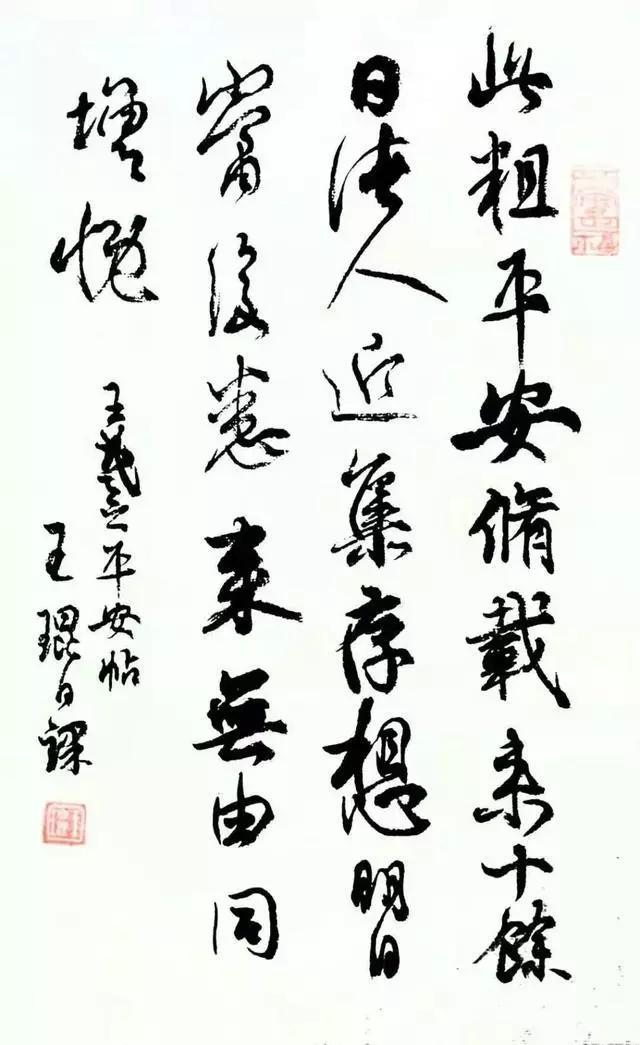 此粗平安脩載来十餘
日諸人近集存想明日
當復悉来無由同
增慨
王羲之平安帖
王琨日課